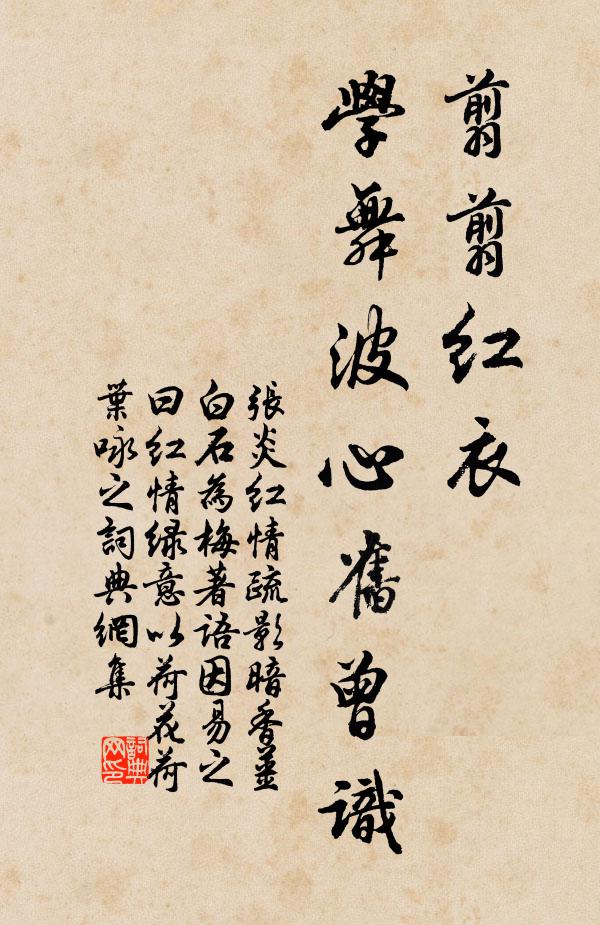 翦翦紅衣
學舞波心舊曾識
張炎紅情疏影暗香薑
白石為梅著語因易之
曰紅情綠意以荷花荷
葉咏之詞典網集
詞典
网印